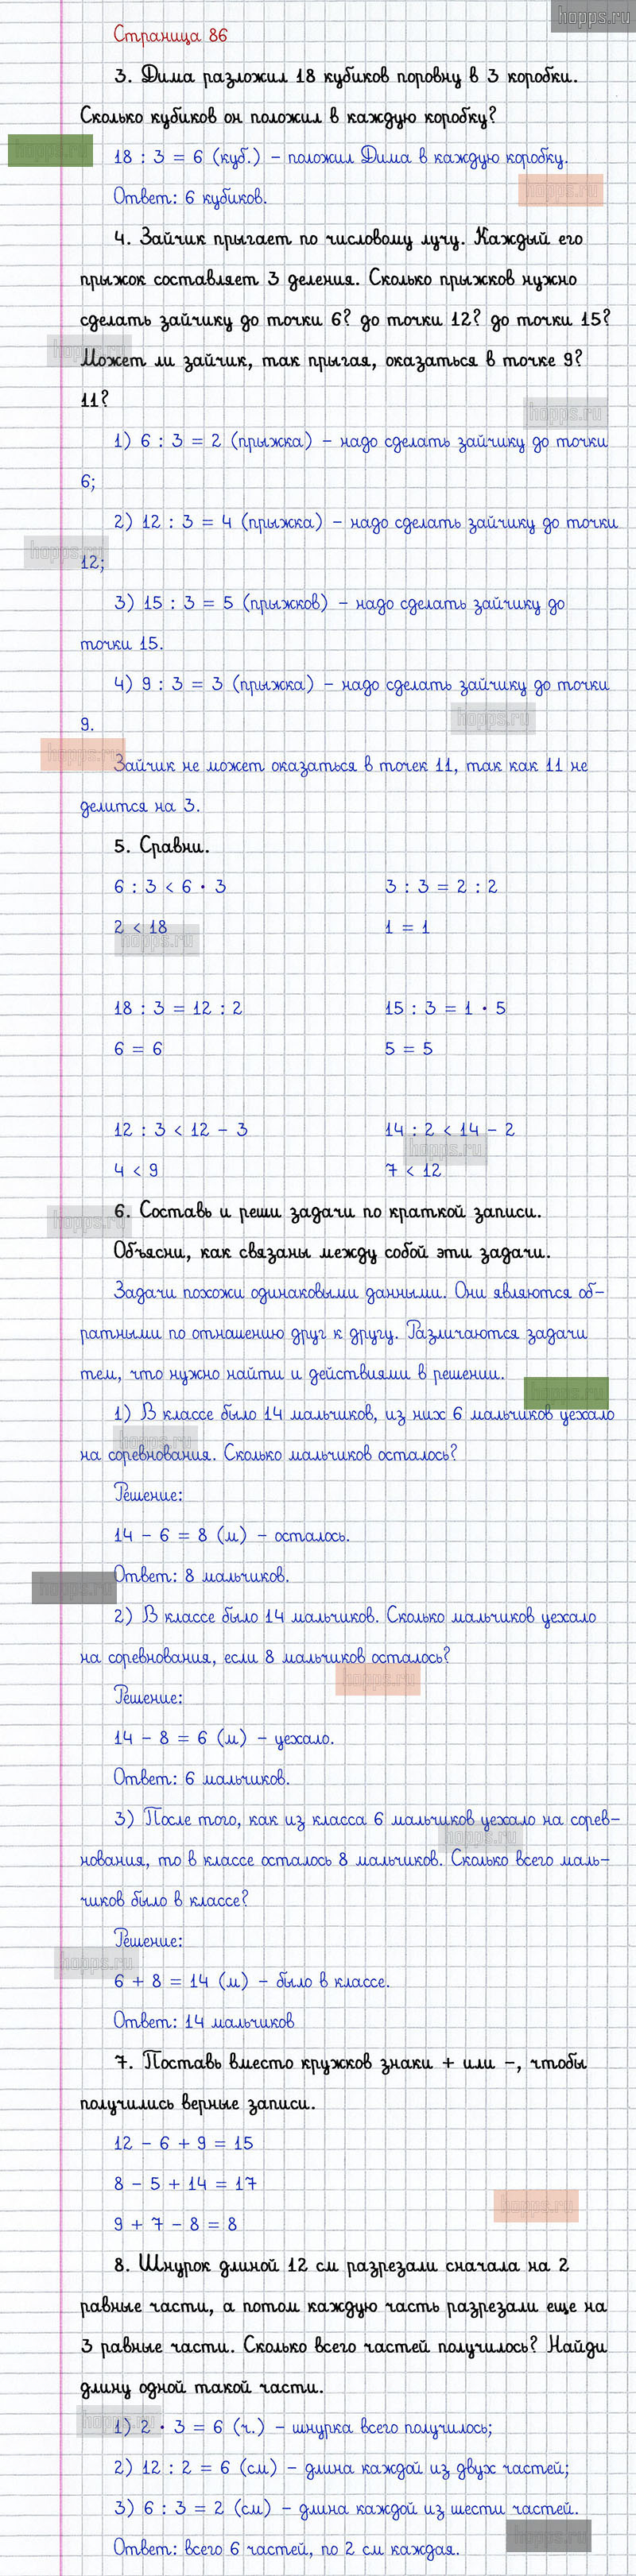 hopps.ru
Страница 86
3. Дима разложил 18 кубиков поровну в 3 коробки.
Сколько кубиков он положил в каждую коробку?
hopps.ru
18 : 3 = 6 (куб.) – положил Дима в каждую коробку.
hopps.ru
Ответ: 6 кубиков.
4. Зайчик прыгает по числовому лучу. Каждый его
прыжок составляет 3 деления. Сколько прыжков нужно
сделать зайчику до точки 6? до точки 12? до точки 15?
hopps.ru
Может ли зайчик, так прыгая, оказаться в точке 9?
11?
hopps.ru
1) 6 : 3 = 2 (прыжка) – надо сделать зайчику до точки
6;
2) 12 : 3 = 4 (прыжка) – надо сделать зайчику до точки
hopps.ru
12;
3) 15 : 3 = 5 (прыжков) – надо сделать зайчику до
точки 15.
4) 9 : 3 = 3 (прыжка) – надо сделать зайчику до точки
hopps.ru
9.
hopps.ru
Зайчик не может оказаться в точек 11, так как 11 не
делится на 3.
5. Сравни.
6 : 3 < 6 · 3 3 : 3 = 2 : 2
2 < 18 1 = 1
hopps.ru
18 : 3 = 12 : 2 15 : 3 = 1 · 5
6 = 6 5 = 5
12 : 3 < 12 – 3 14 : 2 < 14 – 2
hopps.ru
4 < 9 7 < 12
hopps.ru
6. Составь и реши задачи по краткой записи.
Объясни, как связаны между собой эти задачи.
Задачи похожи одинаковыми данными. Они являются об–
ратными по отношению друг к другу. Различаются задачи
тем, что нужно найти и действиями в решении.
hopps.ru
1) В классе было 14 мальчиков, из них 6 мальчиков уехало
hopps.ru
на соревнования. Сколько мальчиков осталось?
Решение:
14 – 6 = 8 (м) – осталось.
hopps.ru
Ответ: 8 мальчиков.
2) В классе было 14 мальчиков. Сколько мальчиков уехало
на соревнования, если 8 мальчиков осталось?
hopps.ru
Решение:
14 – 8 = 6 (м) – уехало.
Ответ: 6 мальчиков.
3) После того, как из класса 6 мальчиков уехало на сорев–
hopps.ru
нования, то в классе осталось 8 мальчиков. Сколько всего маль–
чиков было в классе?
Решение:
hopps.ru
6 + 8 = 14 (м) – было в классе.
Ответ: 14 мальчиков
7. Поставь вместо кружков знаки + или –, чтобы
получились верные записи.
12 – 6 + 9 = 15
8 – 5 + 14 = 17
hopps.ru
9 + 7 – 8 = 8
8. Шнурок длиной 12 см разрезали сначала на 2
равные части, а потом каждую часть разрезали еще на
3 равные части. Сколько всего частей получилось? Найди
длину одной такой части.
hopps.ru
1) 2 · 3 = 6 (ч.) – шнурка всего получилось;
2) 12 : 2 = 6 (см) – длина каждой из двух частей;
3) 6 : 3 = 2 (см) – длина каждой из шести частей.
hopps.ru
Ответ: всего 6 частей, по 2 см каждая.